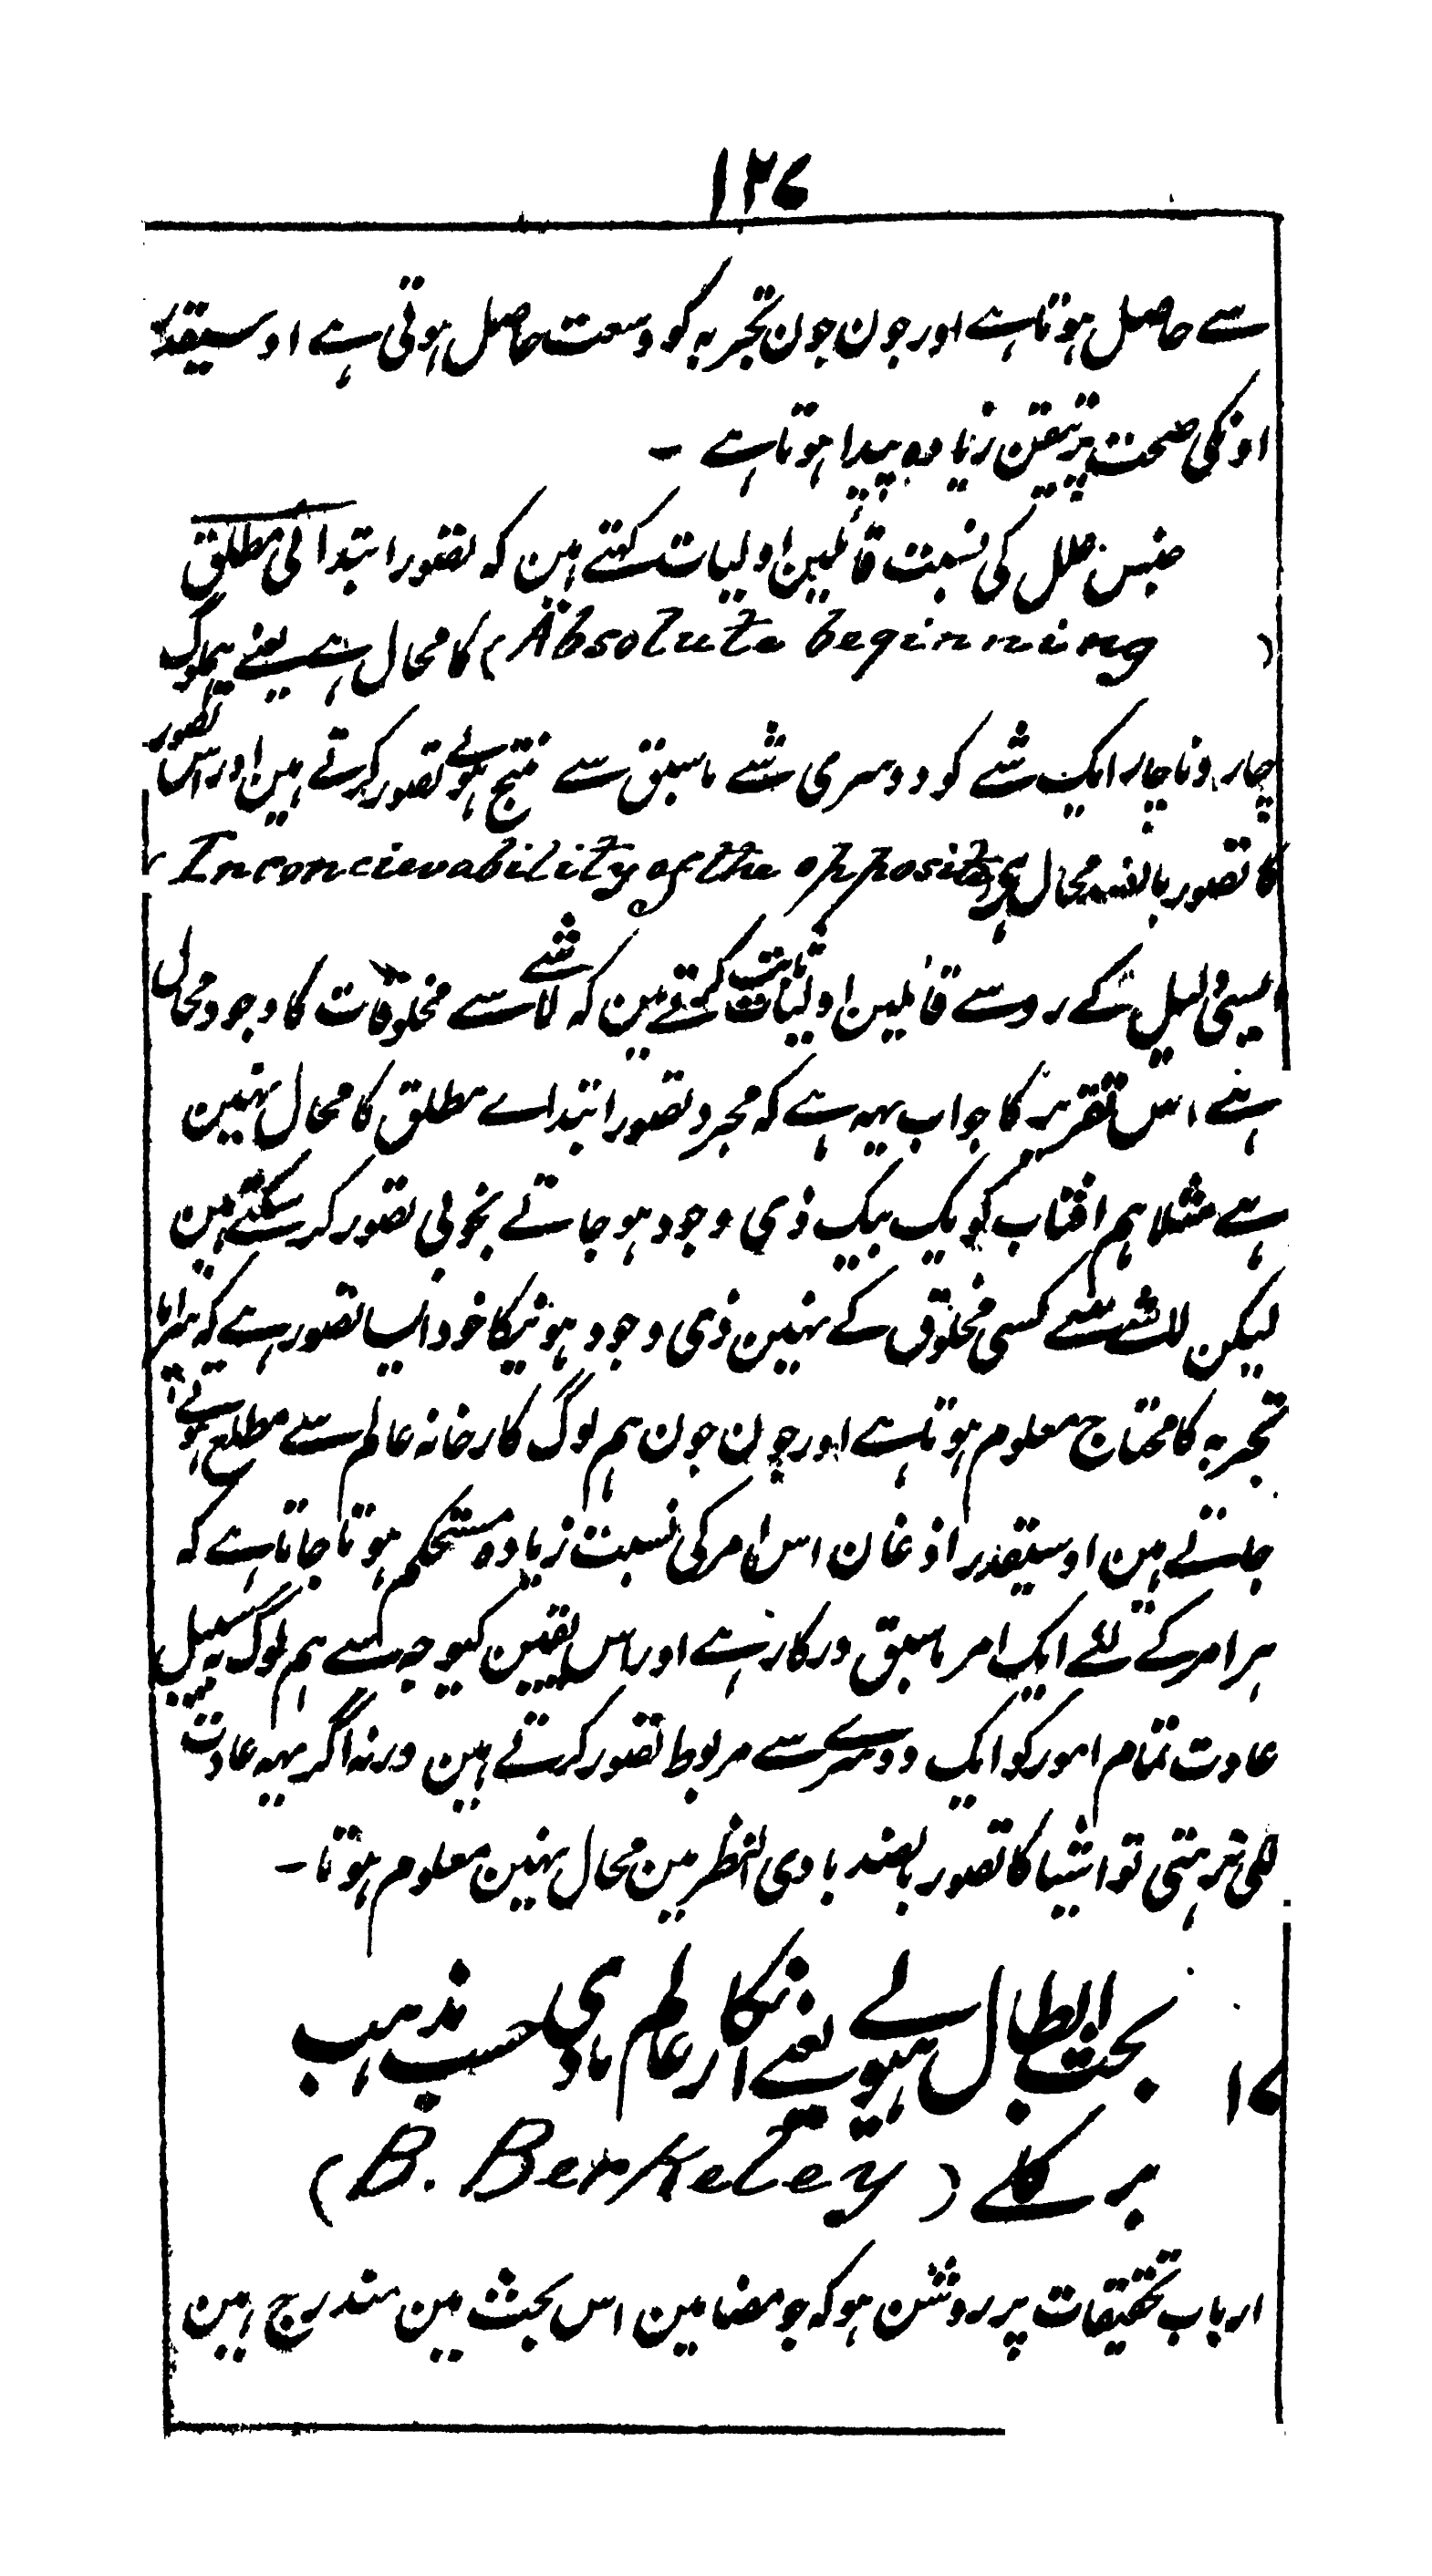 ۱۲۷
سے حاصل ہوتا ہے اور جون جون تجربہ کو وسعت حاصل ہوتی ہے اوسیقدر
اونکی صحت پر تیقن زیادہ پیدا ہوتا ہے ۔
جنس علل کی نسبت قائلین اولیات کہتے ہین کہ تصور ابتدائی مطلق
(Absolute beginning) کا محال ہے یعنے ہملوگ
چار و ناچار ایک شے کو دوسری شے ماسبق سے منتج ہوئے تصور کرتے ہین اور اس تصور
کا تصور بالضد محال ہے (Inconcievability of the opposite
اسی دلیل کے روسے قائلین اولیات ثابت کرتے ہین کہ لاشے سے مخلوقات کا وجود محال
ہے، اس تقریر کا جواب یہہ ہے کہ مجرد تصور ابتداے مطلق کا محال نہین
ہے مثلا ہم افتاب کو یک بیک ذی وجود ہو جاتے بخوبی تصور کر سکتے ہین
لیکن لاشے سے کسی مخلوق کے نہین ذی وجود ہونیکا خود ایسا تصور ہے کہ سراپا
تجربہ کا محتاج معلوم ہوتا ہے اور جون جون ہم لوگ کارخانہ عالم سے مطلع ہوتے
جاتے ہین اوسیقدر اذغان اس امر کی نسبت زیادہ مستحکم ہوتا جاتا ہے کہ
ہر امر کے لئے ایک امر ماسبق درکار ہے اور اس یقین کیوجہ سے ہم لوگ بہ سبیل
عادت تمام امور کو ایک دوسرے سے مربوط تصور کرتے ہین ورنہ اگر یہہ عادت
نہ ہتی تو اشیا کا تصور بالضد بادی النظر مین محال نہین معلوم ہوتا ۔
۱۷ بحث ابطال ہیولے یعنے انکار عالم مادی حسب مذہب
برکلے (B. Berkeley)
ارباب تحقیقات پر روشن ہو کہ جو مضامین اس بحث مین مندرج ہین